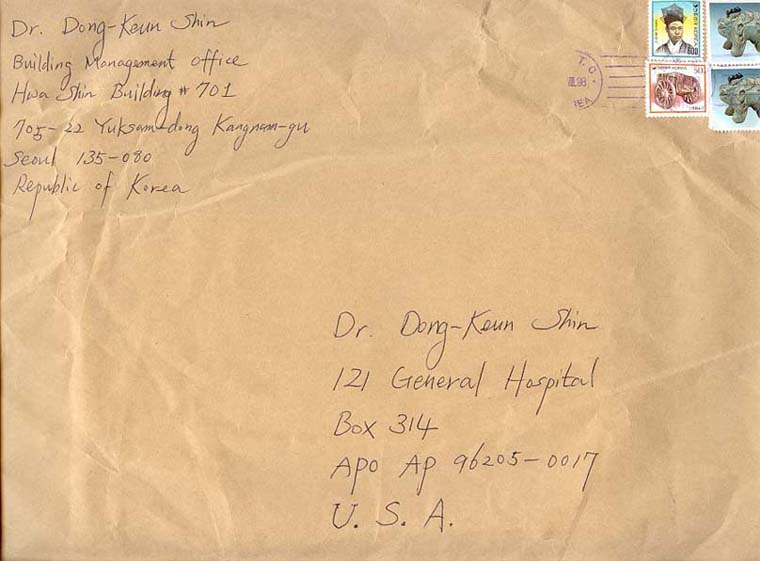 Dr. Dong-Keun Shin
Building Management office
Hwa Shin Building # 701
705-22 Yuksam-dong Kangnam-gu
Seoul 135-080
Republic of Korea
600
50
Dr. Dong-Keun Shin
121 General Hospital
Box 314
APO AP 96205-0017
U. S. A.